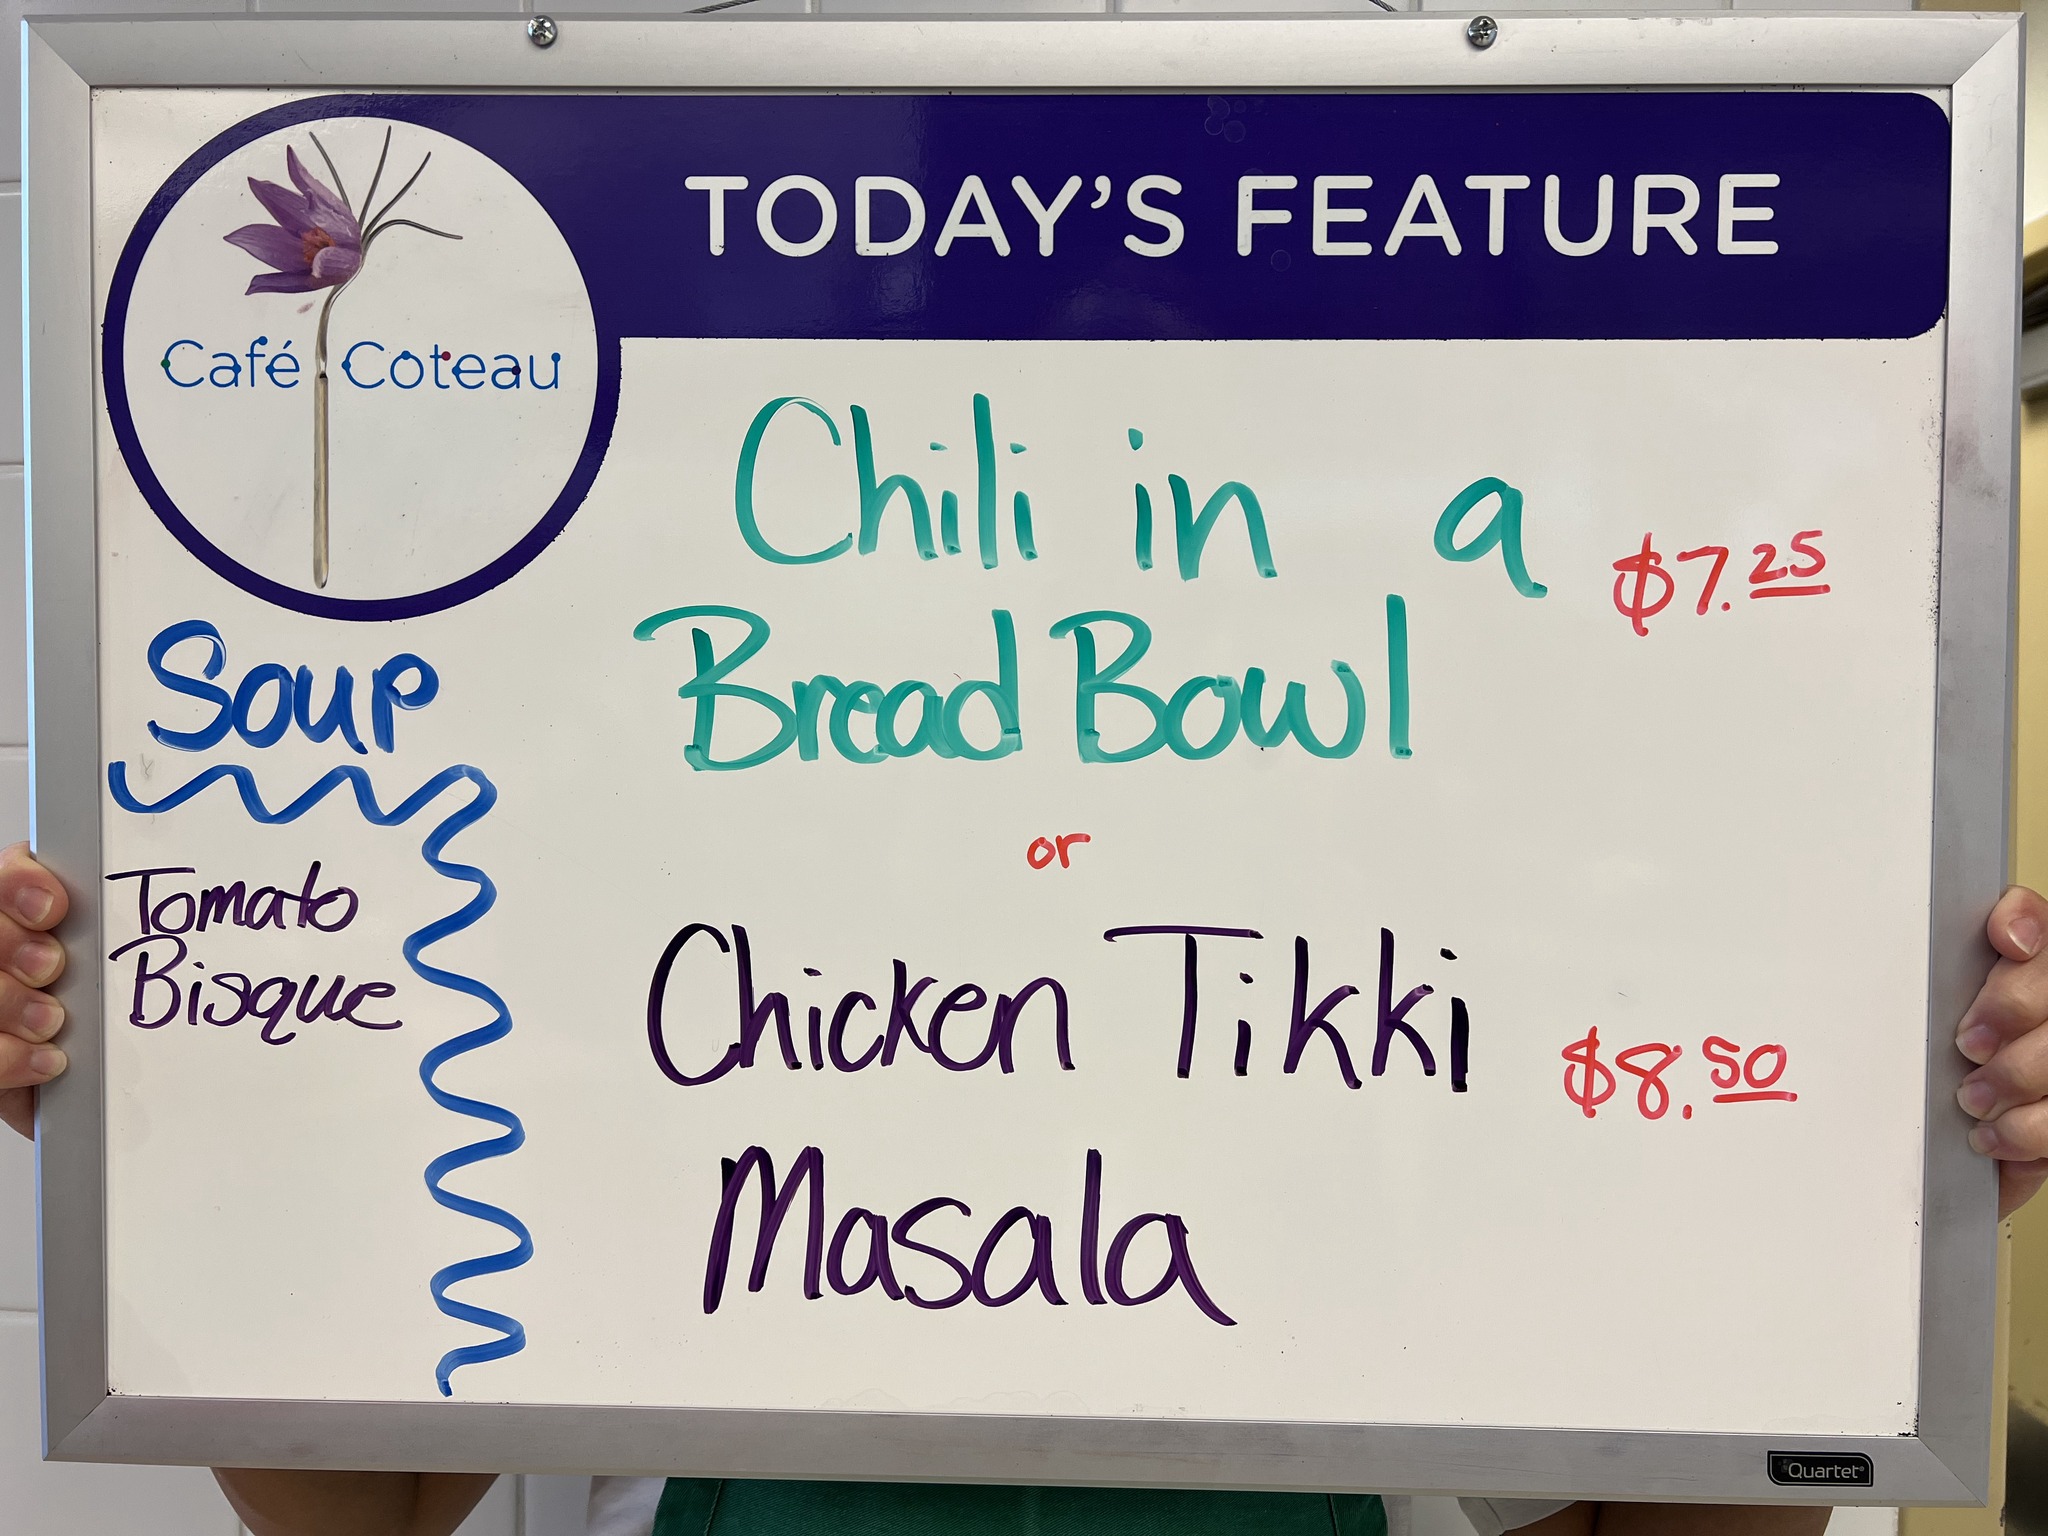 TODAY'S FEATURE
Café Coteau
Chili in a
$7.25
Bread Bowl
or
Chicken Tikki
$8.50
Masala
Soup
Tomato
Bisque
Quartet